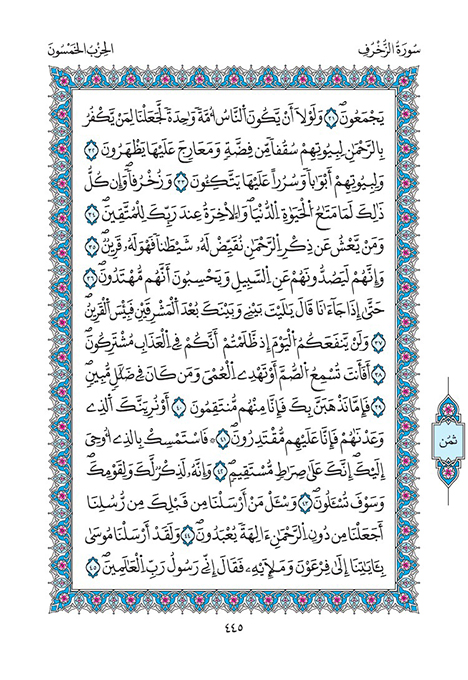 سُورَةُ الزُّخْرُفِ
الحِزْبُ الخَمْسُونَ
يَجْمَعُونَۖ ٣١ وَلَوْلَا أَنْ يَّكُونَ اَ۬لنَّاسُ أُمَّةٗ وَٰحِدَةٗ لَّجَعَلْنَا لِمَنْ يَّكْفُرُ
بِالرَّحْمَٰنِ لِبُيُوتِهِمْ سُقُفاٗ مِّن فِضَّةٖ وَمَعَارِجَ عَلَيْهَا يَظْهَرُونَۖ ٣٢
وَلِبُيُوتِهِمُۥٓ أَبْوَٰباٗ وَسُرُراً عَلَيْهَا يَتَّكِـُٔونَۖ ٣٣ وَزُخْرُفاٗۖ وَإِن كُلُّ
ذَٰلِكَ لَمَا مَتَٰعُ اُ۬لْحَيَوٰةِ اِ۬لدُّنْيَاۖ وَالَاخِرَةُ عِندَ رَبِّكَ لِلْمُتَّقِينَۖ ٣٤
وَمَنْ يَّعْشُ عَن ذِكْرِ اِ۬لرَّحْمَٰنِ نُقَيِّضْ لَهُۥ شَيْطَٰناٗ فَهُوَ لَهُۥ قَرِينٞۖ ٣٥
وَإِنَّهُمْ لَيَصُدُّونَهُمْ عَنِ اِ۬لسَّبِيلِ وَيَحْسِبُونَ أَنَّهُم مُّهْتَدُونَۖ ٣٦
حَتَّىٰٓ إِذَا جَآءَٰنَا قَالَ يَٰلَيْتَ بَيْنِي وَبَيْنَكَ بُعْدَ اَ۬لْمَشْرِقَيْنِ فَبِيسَ اَ۬لْقَرِينُۖ
٣٧ وَلَنْ يَّنفَعَكُمُ اُ۬لْيَوْمَ إِذ ظَّلَمْتُمُۥٓ أَنَّكُمْ فِي اِ۬لْعَذَابِ مُشْتَرِكُونَۖ
٣٨ أَفَأَنتَ تُسْمِعُ اُ۬لصُّمَّ أَوْ تَهْدِي اِ۬لْعُمْيَ وَمَن كَانَ فِي ضَلَٰلٖ مُّبِينٖۖ
٣٩ فَإِمَّا نَذْهَبَنَّ بِكَ فَإِنَّا مِنْهُم مُّنتَقِمُونَ ٤٠ أَوْ نُرِيَنَّكَ اَ۬لذِے
وَعَدْنَٰهُمْ فَإِنَّا عَلَيْهِم مُّقْتَدِرُونَۖ ٤١ فَاسْتَمْسِكْ بِالذِےٓ أُوحِيَ
إِلَيْكَۖ إِنَّكَ عَلَىٰ صِرَٰطٖ مُّسْتَقِيمٖۖ ٤٢ وَإِنَّهُۥ لَذِكْرٞ لَّكَ وَلِقَوْمِكَۖ
وَسَوْفَ تُسْـَٔلُونَۖ ٤٣ وَسْـَٔلْ مَنَ اَرْسَلْنَا مِن قَبْلِكَ مِن رُّسُلِنَآ
أَجَعَلْنَا مِن دُونِ اِ۬لرَّحْمَٰنِ ءَالِهَةٗ يُعْبَدُونَۖ ٤٤ وَلَقَدَ اَرْسَلْنَا مُوسَىٰ
بِـَٔايَٰتِنَآ إِلَىٰ فِرْعَوْنَ وَمَلَإِيْهِۦ فَقَالَ إِنِّي رَسُولُ رَبِّ اِ۬لْعَٰلَمِينَۖ ٤٥
ثُمُن
٤٤٥